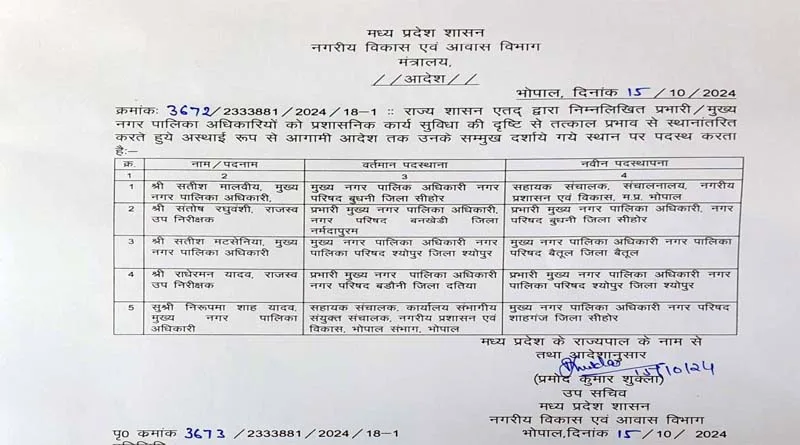 मध्य प्रदेश शासन
नगरीय विकास एवं आवास विभाग
मंत्रालय,
//आदेश//
भोपाल, दिनांक 15/10/2024
क्रमांकः 3672/2333881/2024/18-1 :: राज्य शासन एतद् द्वारा निम्नलिखित प्रभारी/मुख्य
नगर पालिका अधिकारियों को प्रशासनिक कार्य सुविधा की दृष्टि से तत्काल प्रभाव से स्थानांतरित
करते हुये अस्थाई रूप से आगामी आदेश तक उनके सम्मुख दर्शाये गये स्थान पर पदस्थ करता
है:-
क्र. नाम/पदनाम वर्तमान पदस्थाना नवीन पदस्थापना
1 2 3 4
1 श्री सतीश मालवीय, मुख्य मुख्य नगर पालिक अधिकारी नगर सहायक संचालक, संचालनालय, नगरीय
नगर पालिका अधिकारी, परिषद बुधनी जिला सीहोर प्रशासन एवं विकास, म.प्र. भोपाल
2 श्री संतोष रघुवंशी, राजस्व प्रभारी मुख्य नगर पालिका अधिकारी, प्रभारी मुख्य नगर पालिका अधिकारी, नगर
उप निरीक्षक नगर परिषद बनखेडी जिला परिषद बुधनी जिला सीहोर
नर्मदापुरम
3 श्री सतीश मटसेनिया, मुख्य मुख्य नगर पालिका अधिकारी नगर मुख्य नगर पालिका अधिकारी नगर पालिका
नगर पालिका अधिकारी पालिका परिषद श्योपुर जिला श्योपुर परिषद बैतूल जिला बैतूल
4 श्री राधेरमन यादव, राजस्व प्रभारी मुख्य नगर पालिका अधिकारी प्रभारी मुख्य नगर पालिका अधिकारी नगर
उप निरीक्षक नगर परिषद बडौनी जिला दतिया पालिका परिषद श्योपुर जिला श्योपुर
5 सुश्री निरूपमा शाह यादव, सहायक संचालक, कार्यालय संभागीय मुख्य नगर पालिका अधिकारी नगर परिषद
मुख्य नगर पालिका संयुक्त संचालक, नगरीय प्रशासन एवं शाहगंज जिला सीहोर
अधिकारी विकास, भोपाल संभाग, भोपाल
मध्य प्रदेश के राज्यपाल के नाम से
तथा आदेशानुसार
15/10/24
(प्रमोद कुमार शुक्ला)
उप सचिव
मध्य प्रदेश शासन
नगरीय विकास एवं आवास विभाग
पृ0 कमांक 3673/2333881/2024/18-1 भोपाल, दिनांक 15/10/2024